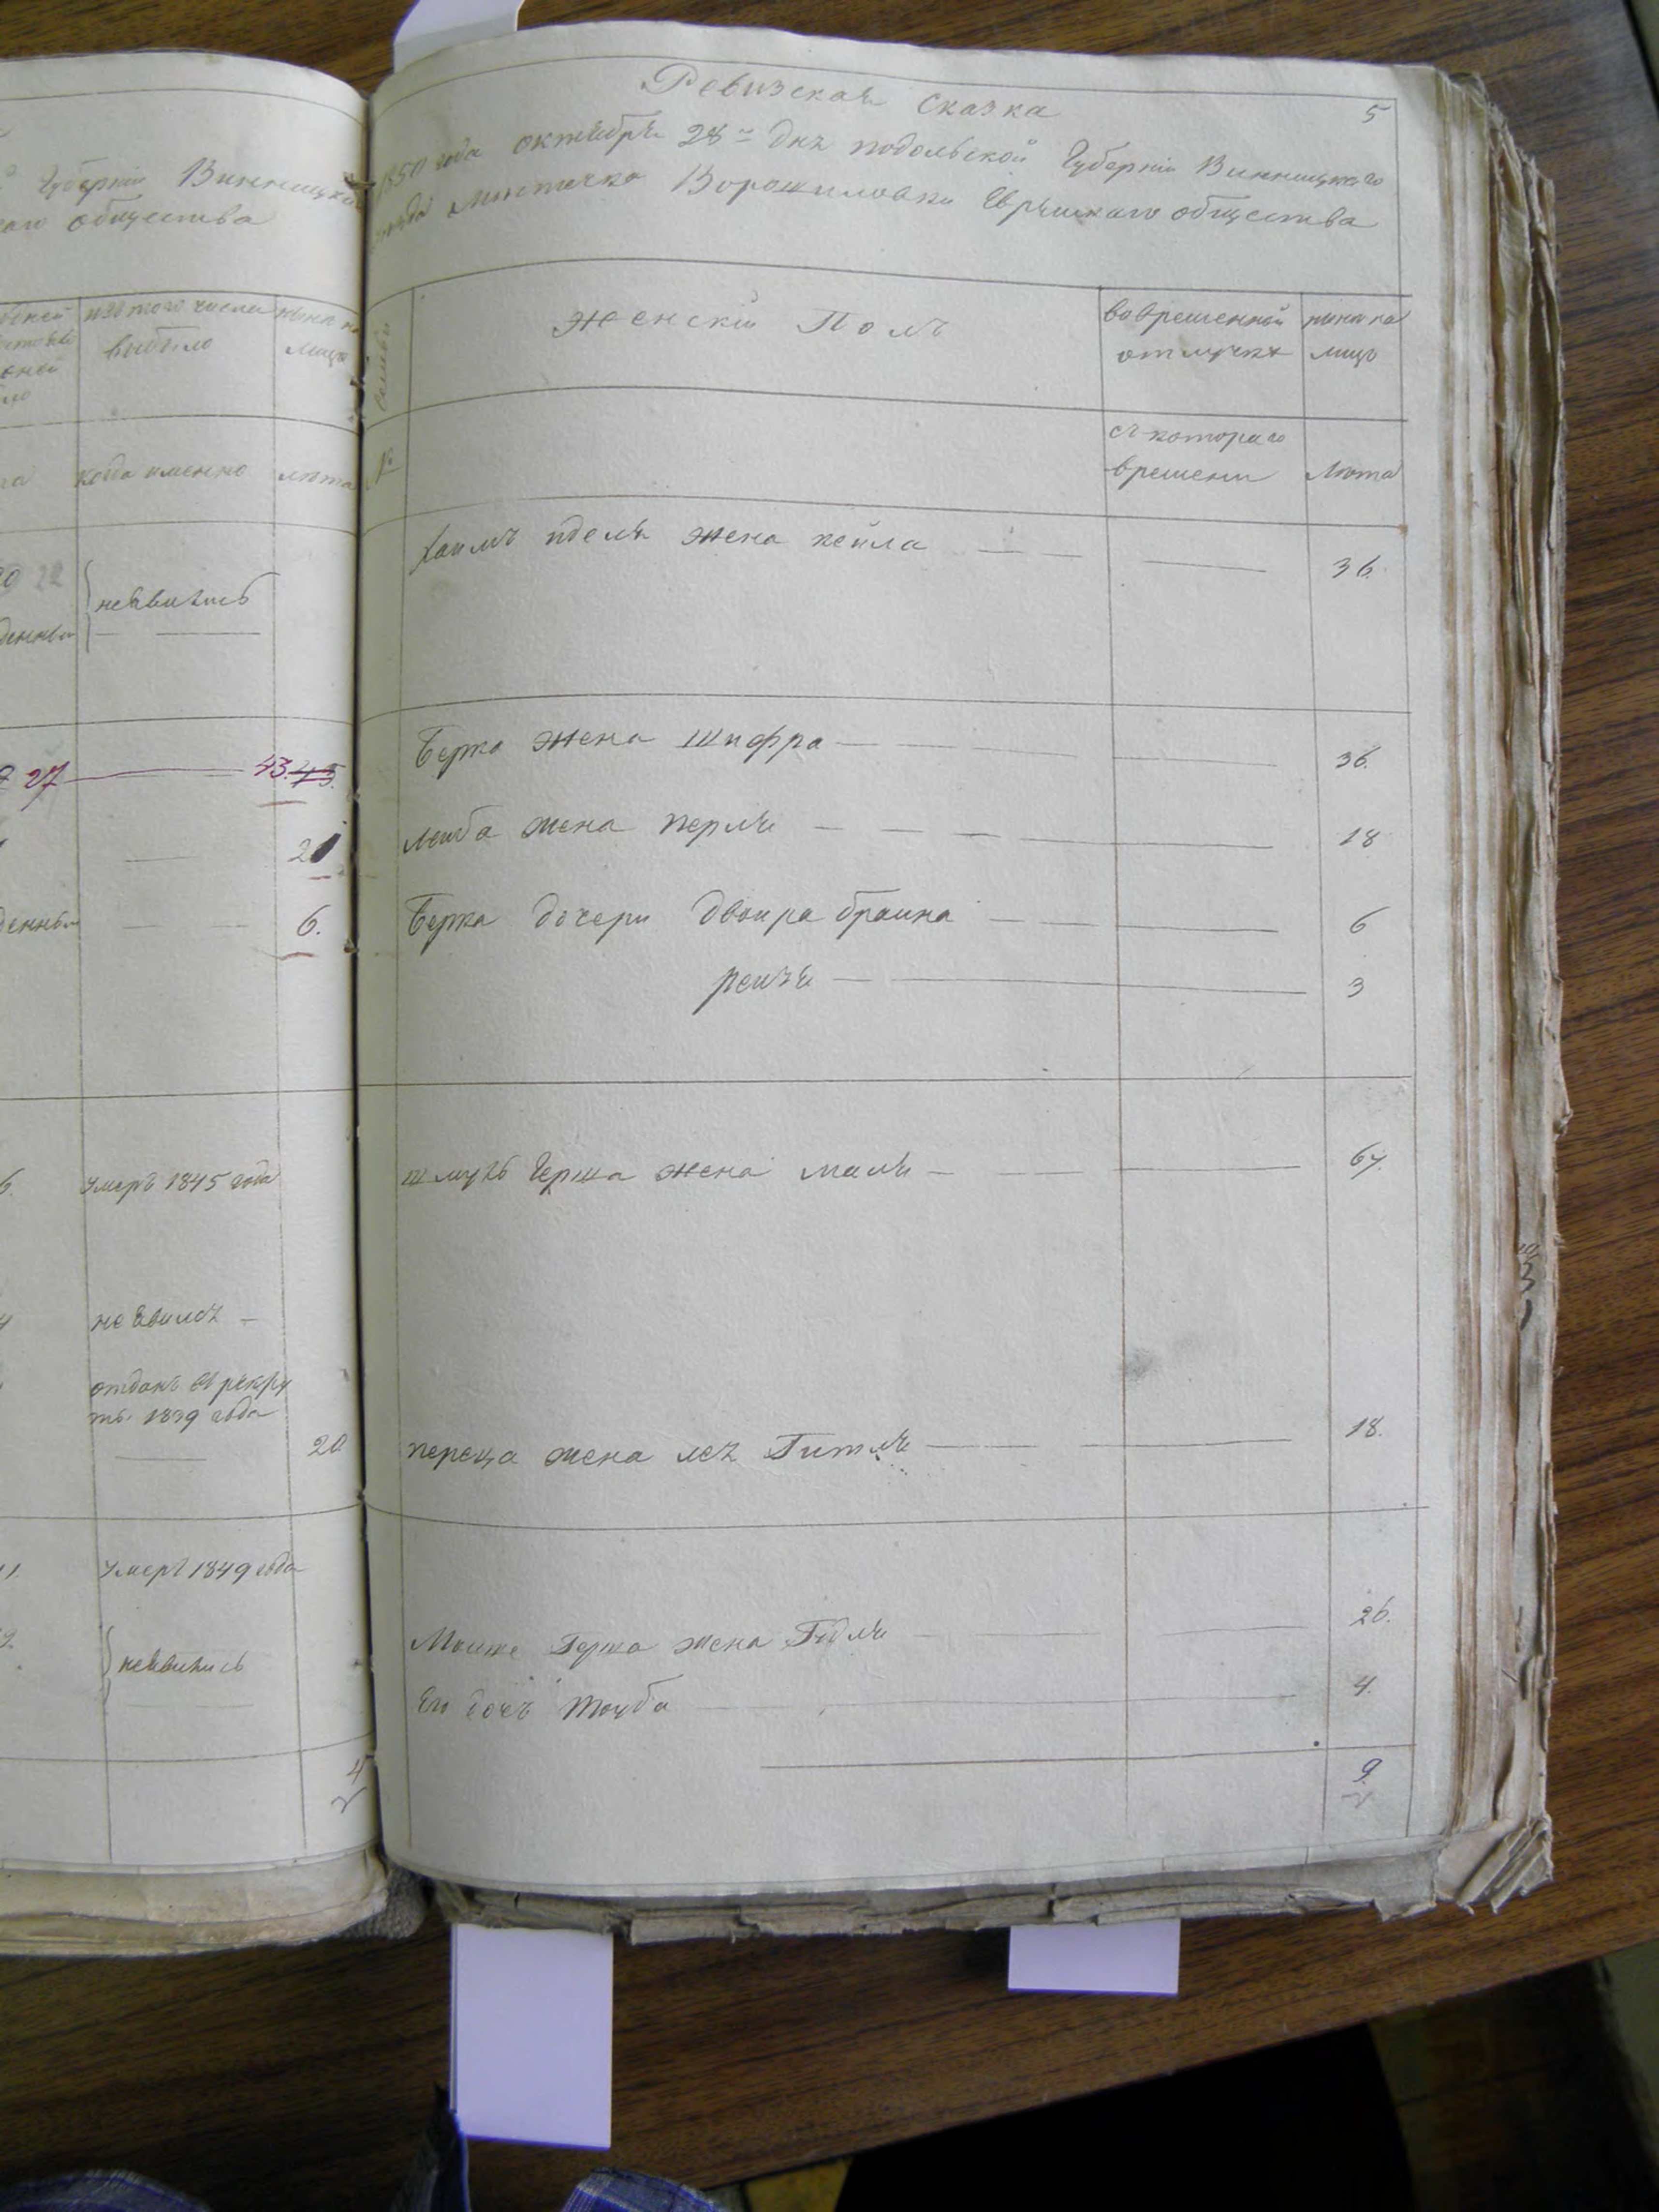 Губерніи Винницка
общества
изъ того числа
выбыло
когда именно
лѣта
неявились
27
43. 45.
21
6.
умеръ 1845 года
неявился
отданъ въ рекру
ты 1839 года
20
умеръ 1849 года
неявились
4
Ревизская Сказка
5
1850 года октября 28 дня подольской Губерніи Винницкаго
уѣзда Мѣстечка Ворошиловки Еврейскаго общества
Женскій Полъ
во временной
отлучкѣ
ныне на
лицо
семьи
№
съ котораго
времени
лѣта
Хаимъ иделя жена кейла
36.
Берка жена Шифра
36.
лейба жена перля
18
Берка дочери Двойра браина
6
рейзя
3
шмуль Герша жена маля
67.
переца жена лея Гитля
18.
Мошке Герша жена Гидля
26.
Его дочь тоуба
4.
9